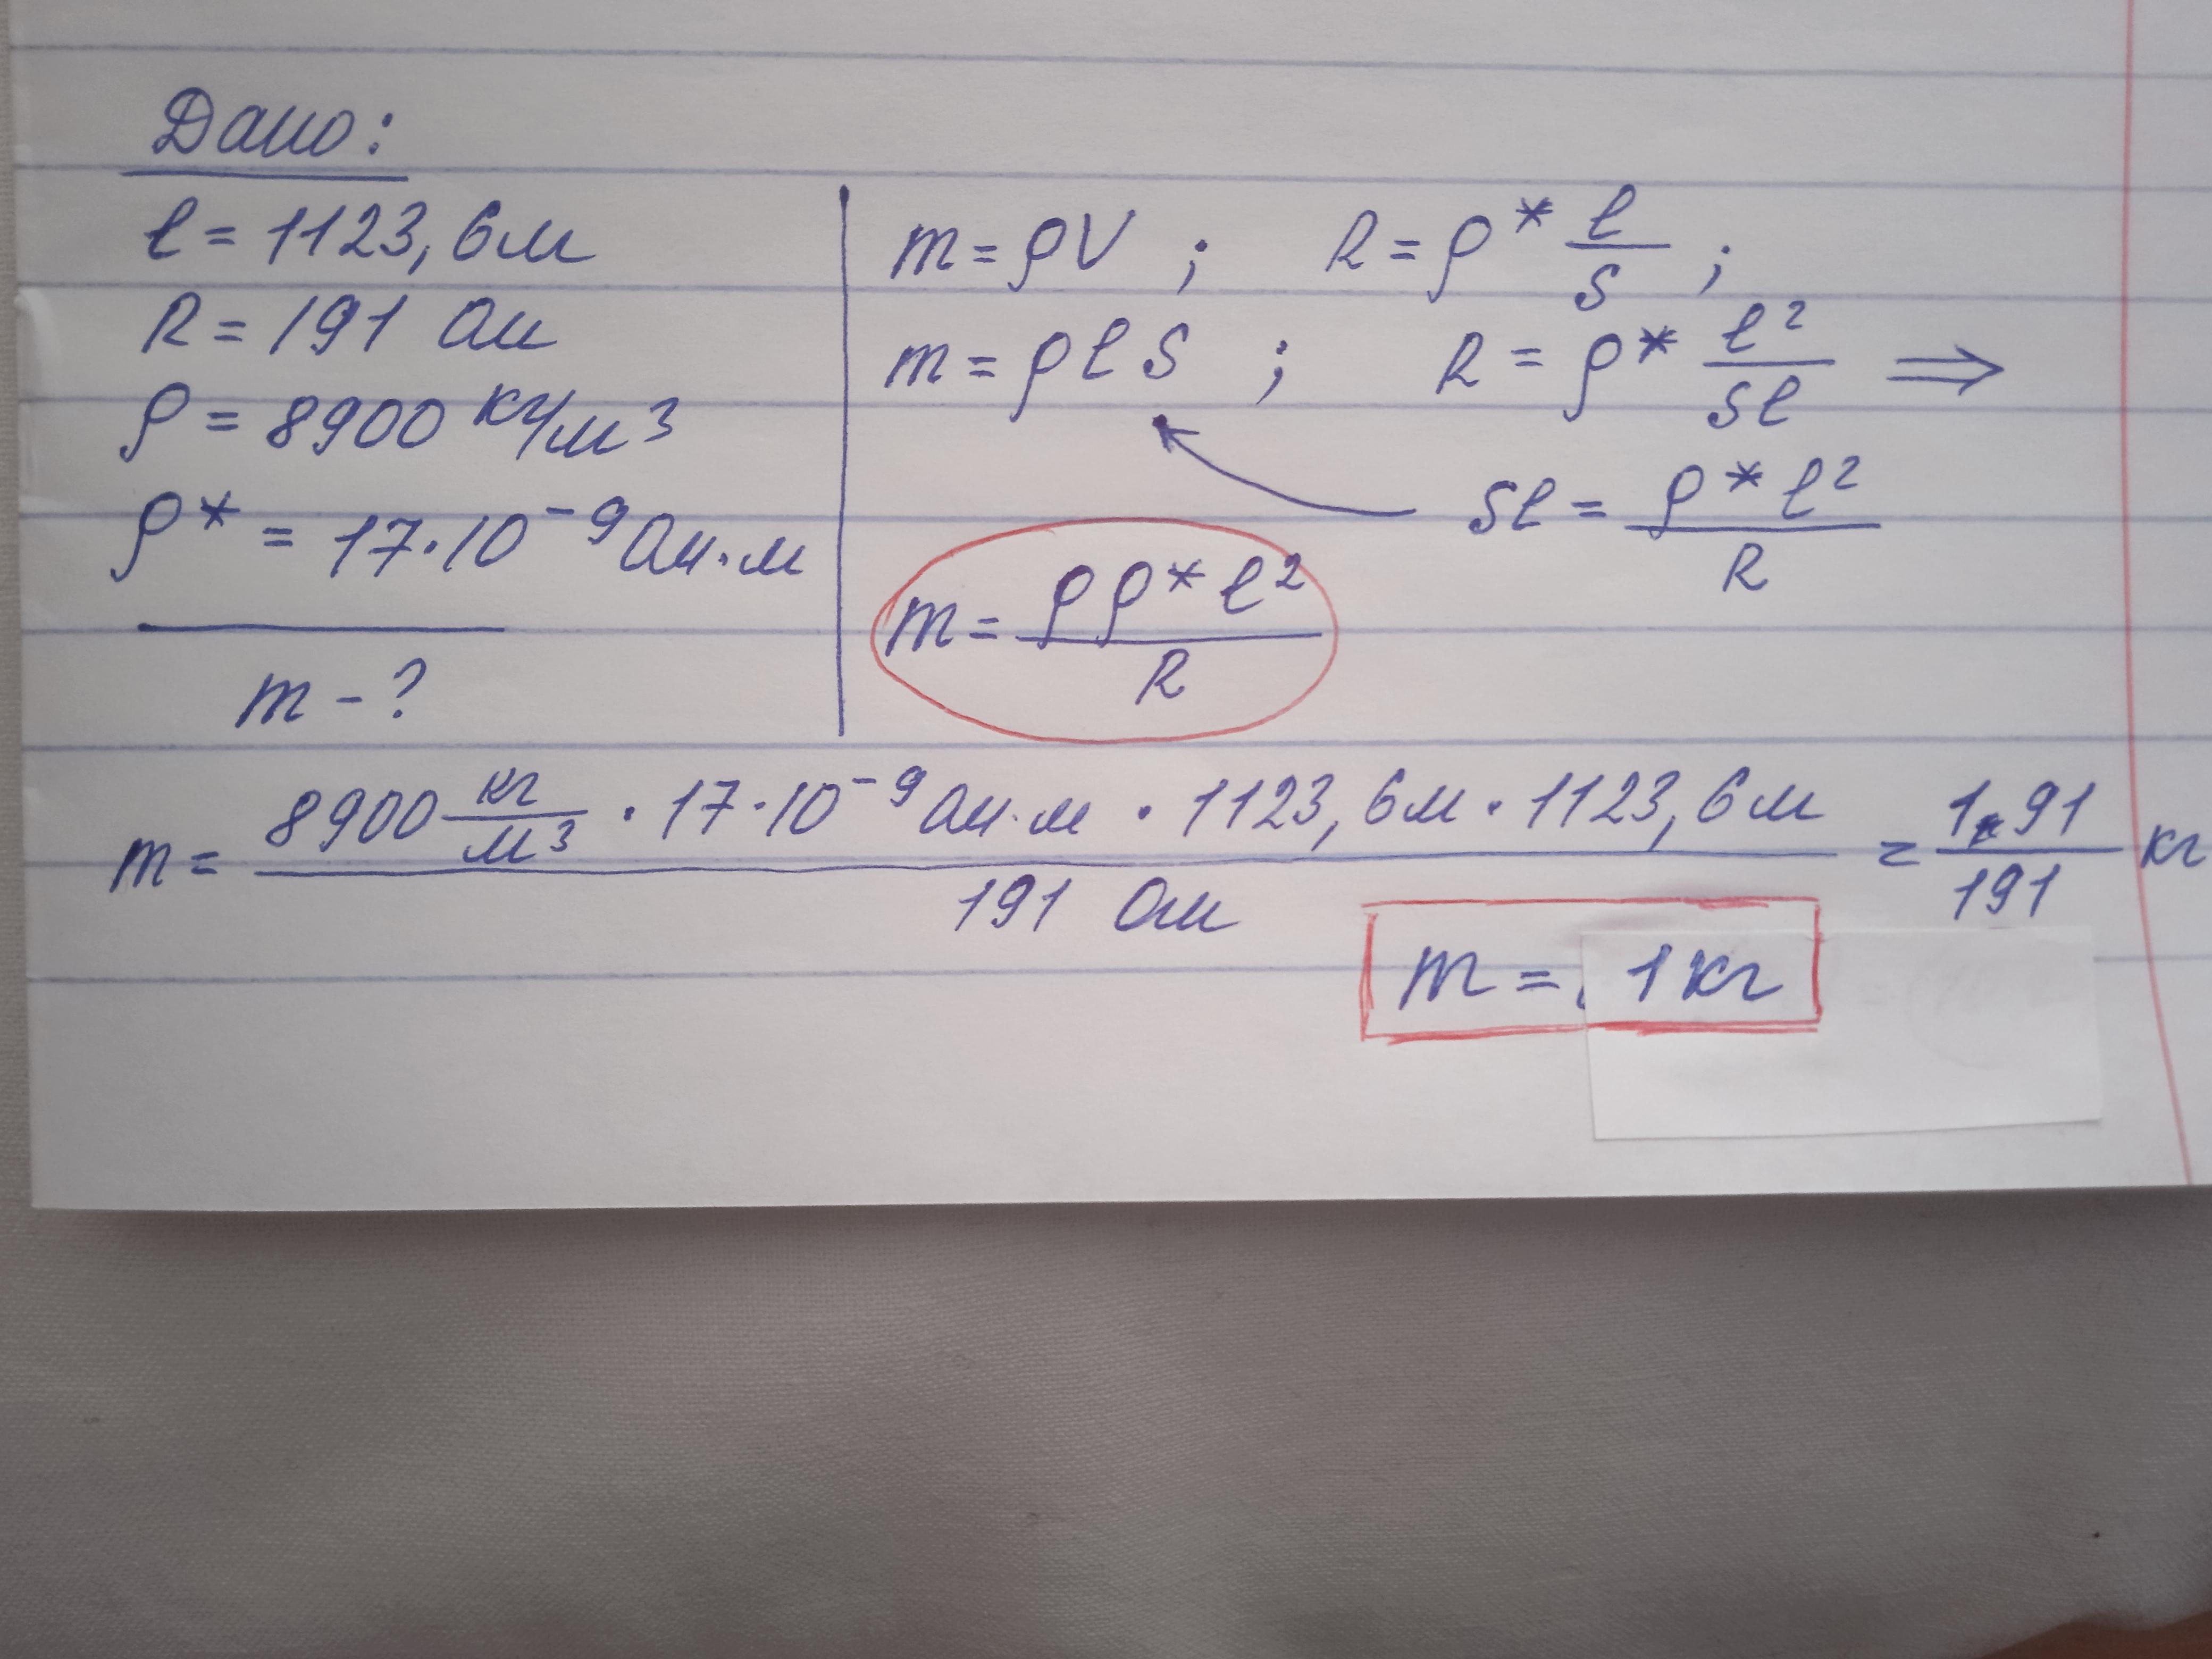 Дано:
l = 1123,6м
R = 191 Ом
ρ = 8900 кг/м³
ρ* = 17·10⁻⁹ Ом·м
m - ?
m = ρV ; R = ρ* l/S ;
m = ρlS ; R = ρ* l²/Sl ⇒
Sl = ρ* l²/R
m = ρρ* l²/R
m = 8900 кг/м³ · 17·10⁻⁹ Ом·м · 1123,6м · 1123,6м / 191 Ом = 191/191 кг
m = 1кг